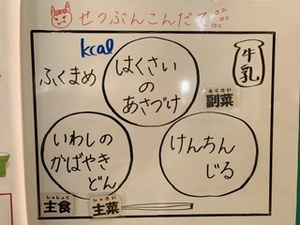 せつぶんこんだて
kcal
ふくまめ
はくさい
の
あさづけ
牛乳
ふくさい
副菜
いわしの
かばやき
どん
けんちん
じる
しゅしょく
主食
しゅさい
主菜